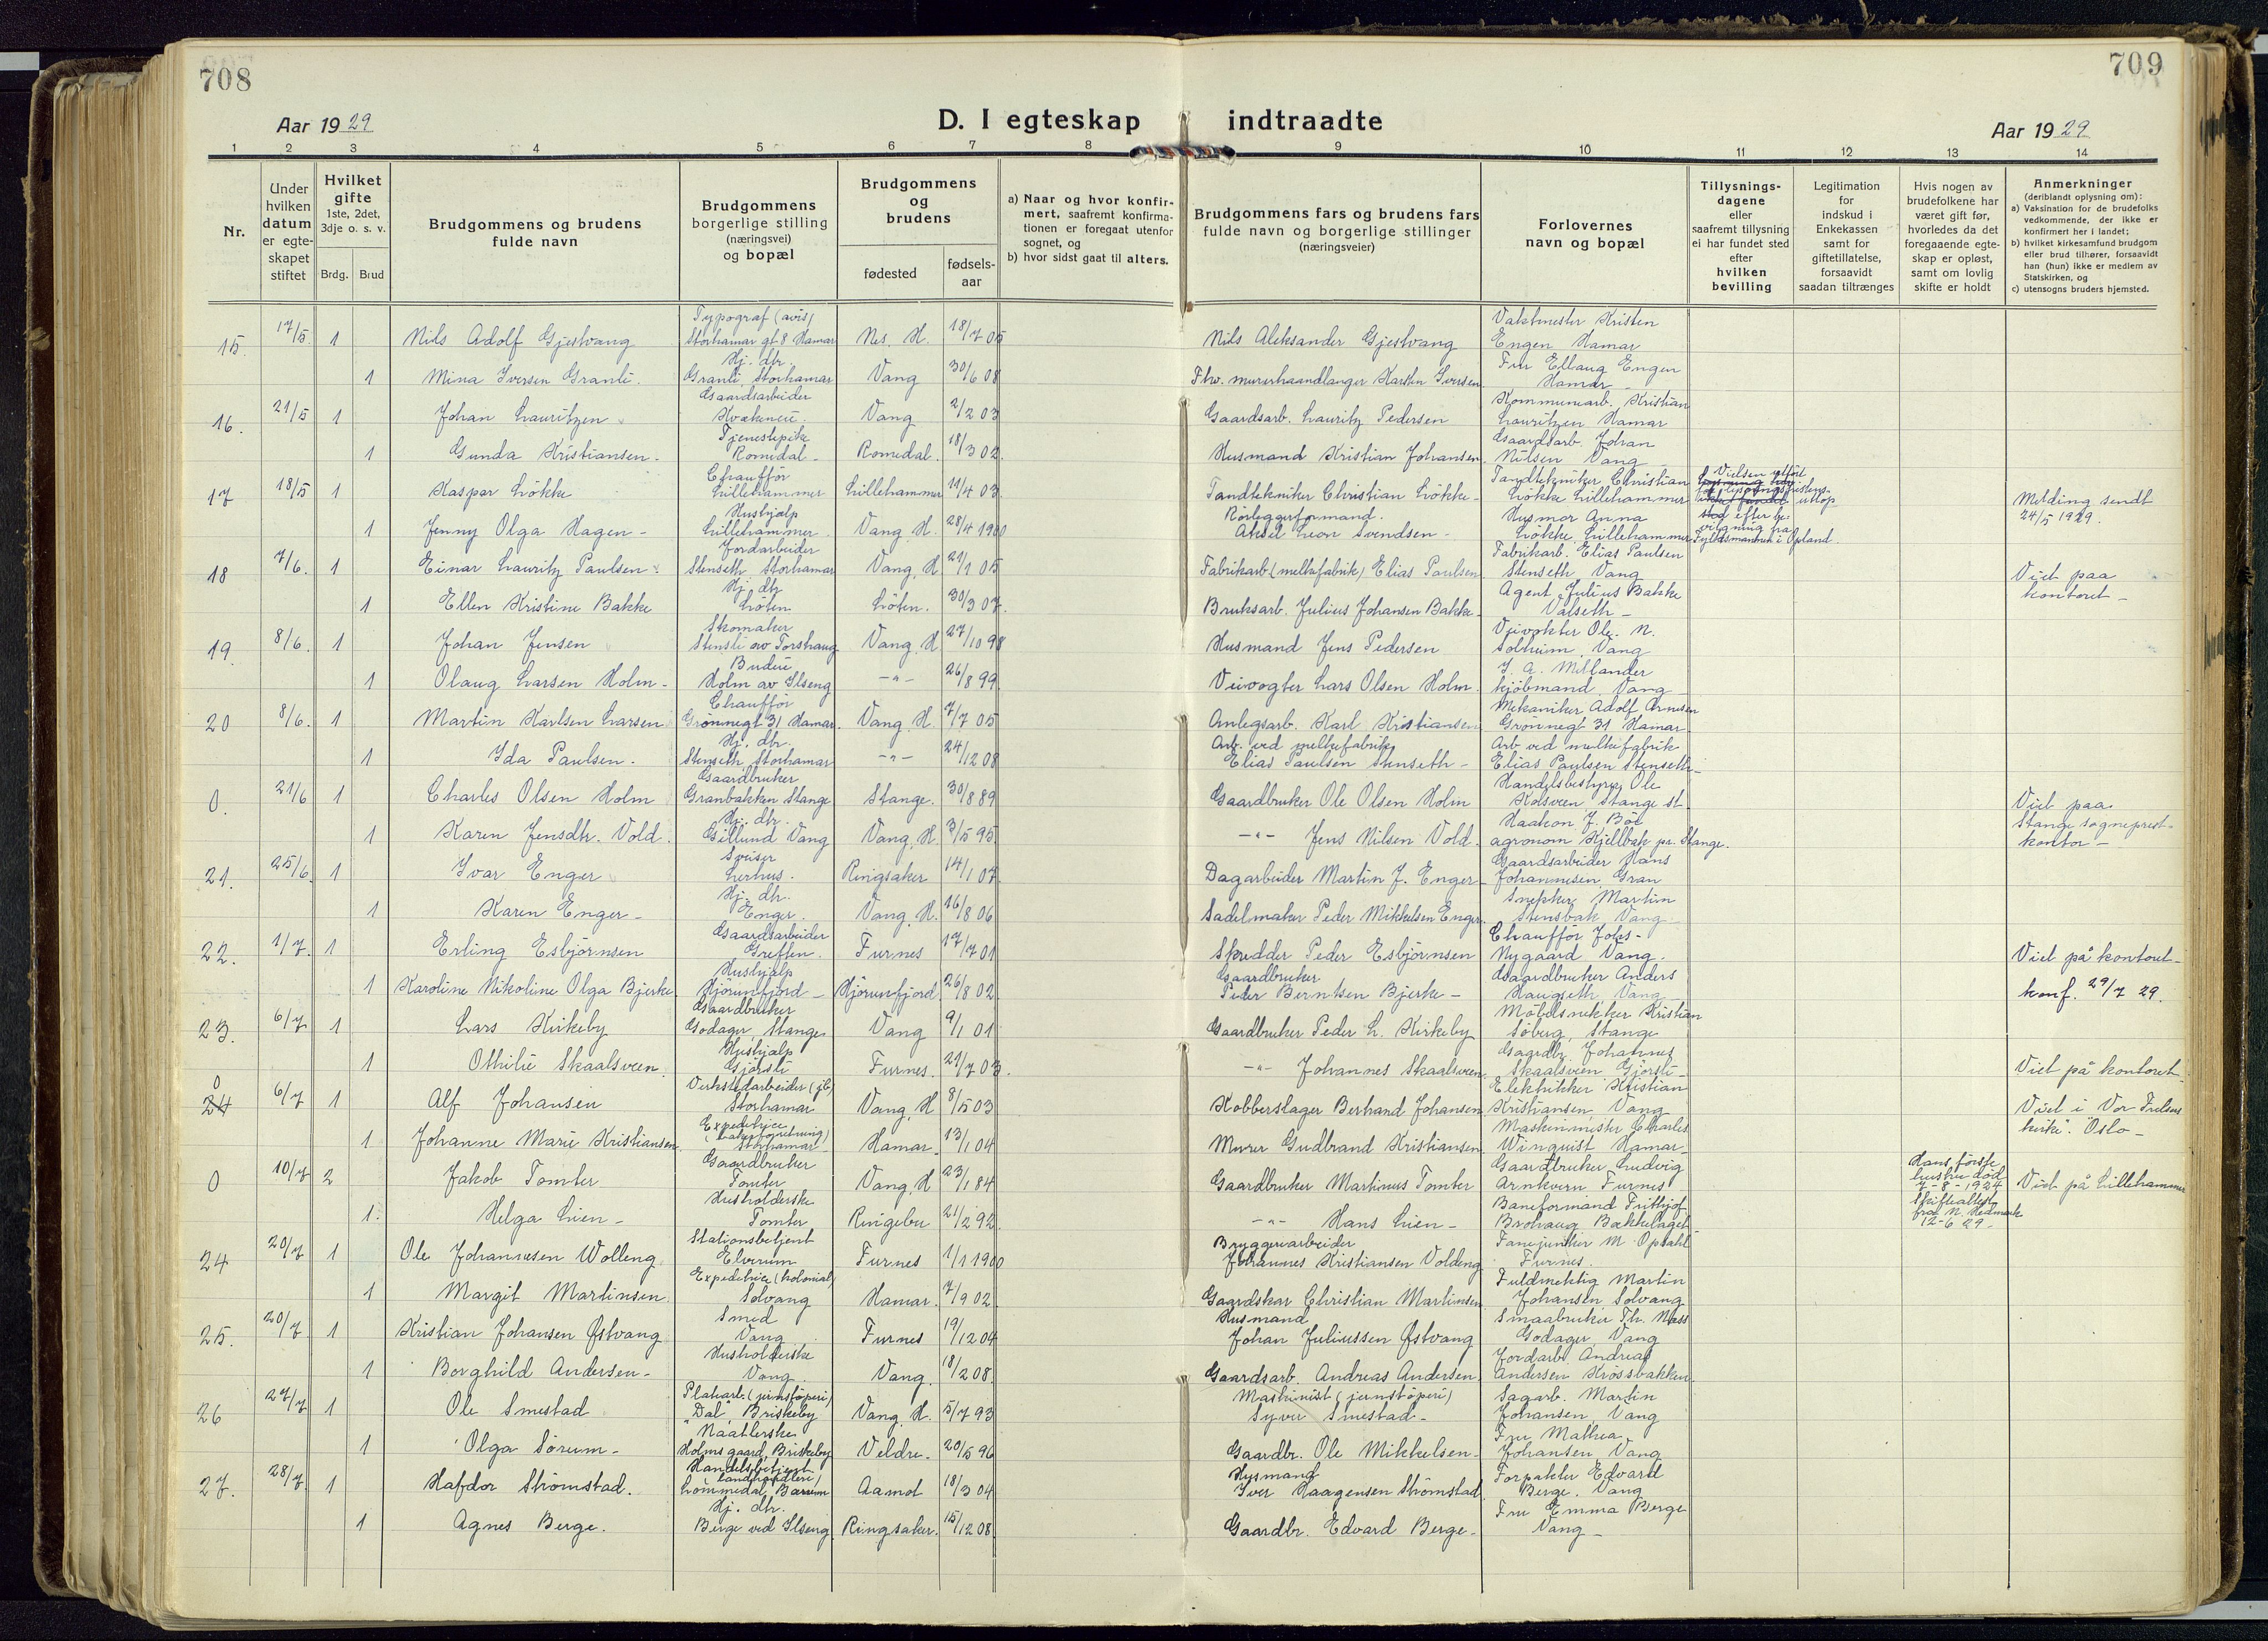 708
709
Aar 1929
D. I egteskap indtraadte
Aar 1929
1 2 3 4 5 6 7 8 9 10 11 12 13 14
Nr.
Under hvilken datum er egte-skapet stiftet
Hvilket gifte 1ste, 2det, 3dje o. s. v.
Brdg. Brud
Brudgommens og brudens fulde navn
Brudgommens borgerlige stilling (næringsvei) og bopæl
Brudgommens og brudens
fødested
fødsels-aar
a) Naar og hvor konfir-mert, saafremt konfirma-tionen er foregaat utenfor sognet, og
b) hvor sidst gaat til alters.
Brudgommens fars og brudens fars fulde navn og borgerlige stillinger (næringsveier)
Forlovernes navn og bopæl
Tillysnings-dagene eller saafremt tillysning ei har fundet sted efter hvilken bevilling
Legitimation for indskud i Enkekassen samt for giftetillatelse, forsaavidt saadan tiltrænges
Hvis nogen av brudefolkene har været gift før, hvorledes da det foregaaende egte-skap er opløst, samt om lovlig skifte er holdt
Anmerkninger (deriblandt oplysning om):
a) Vaksination for de brudefolks vedkommende, der ikke er konfirmert her i landet;
b) hvilket kirkesamfund brudgom eller brud tilhører, forsaavidt han (hun) ikke er medlem av Statskirken, og
c) utensogns bruders hjemsted.
15. 17/5. 1 Nils Adolf Gjestvang Typograf (avis) Storhamar gt 8 Hamar Nes. H. 18/7 05 Nils Aleksander Gjestvang Vaktmester Kristen Engen Hamar
1 Mina Iversen Granli. Hj. dtr. Granli, Storhamar Vang 30/6 08 Fhv. murerhaandlanger Karsten Iversen Fru Ellaug Engen Hamar
16. 21/5 1 Johan Lauritzen Gaardsarbeider Vang 2/2 03 Gaardsarb. Lauritz Pedersen Kommunearb. Kristian Lauritzen Hamar
1 Gunda Kristiansen. Tjenestepike Romedal Romedal. 18/3 02. Husmand Kristian Johansen Gaardsarb. Johan Nilsen Vang
17 18/5 1 Kaspar Løkke Chauffør Lillehammer Lillehammer 11/4 03. Tandtekniker Christian Løkke Tandtekniker Christian Løkke Lillehammer Vielsen utført efter be-vilgning fra Fylkesmanden i Opland. Melding sendt 24/5 1929.
1 Jenny Olga Hagen Hushjælp Lillehammer Vang, H. 28/4 1900 Rørleggerformand. Aksel Leon Svendsen Husmor Anna Løkke, Lillehammer
18 7/6. 1 Einar Lauritz Paulsen Jordarbeider Stenseth Storhamar Vang, H. 21/1 05 Fabrikarb (melkefabrik) Elias Paulsen Fabrikarb. Elias Paulsen Stenseth Vang Viet paa kontoret
1 Ellen Kristine Bakke Hj. dtr Løten Løten. 30/3 07. Bruksarb. Julius Johansen Bakke Agent Julius Bakke Valseth
19. 8/6. 1 Johan Jensen Skomaker Stensli av Torshaug Vang, H 27/10 98 Husmand Jens Pedersen Veivokter Ole N. Solheim, Vang
1 Olaug Larsen Holm Budeie Holm av Ilseng -"- 26/8 99. Veivogter Lars Olsen Holm J. A. Mellander kjøbmand Vang
20 8/6. 1 Martin Karlsen Larsen Chauffør Grønnegt 31 Hamar. Vang. H. 7/7 05 Anlegsarb. Karl Kristiansen Mekaniker Adolf Arnesen Grønnegt 31 Hamar
1 Ida Paulsen. Hj. dtr. Stenseth, Storhamar -"- 24/12 08 Arb. ved melkefabrik Elias Paulsen Stenseth Arb ved melkefabrik Elias Paulsen Stenseth
0. 21/6 1 Charles Olsen Holm Gaardbruker Granbakken Stange Stange. 30/8 89 Gaardbruker Ole Olsen Holm Handelsbestyrer Ole Kolsveen Stange st. Viet paa Stange sogneprest-kontor
1 Karen Jensdtr. Vold. Hj. dtr. Gillund Vang Vang, H. 3/5 95. -"- Jens Nilsen Vold. Haakon J. Bøe agronom Kjellbak pr. Stange.
21. 25/6. 1 Ivar Enger Sveiser Lerhus. Ringsaker 14/1 07. Dagarbeider Martin J. Enger Gaardsarbeider Hans Johannesen Gran
1 Karen Enger Hj. dtr. Enger. Vang. H. 16/8 06 Sadelmaker Peder Mikkelsen Enger. Snekker Martin Stensbak Vang
22. 1/7. 1 Erling Esbjørnsen Gaardsarbeider Greften. Furnes 17/7 01 Skredder Peder Esbjørnsen Chauffør Johs. Nygaard Vang. Viet på kontoret
1 Karoline Nikoline Olga Bjerke Hushjælp Hjørunfjord Hjørunfjord 26/8 02. Gaardbruker Peder Berntsen Bjerke Gaardbruker Anders Haugseth Vang konf. 29/7 29.
23. 6/7 1 Lars Kirkeby Gaardbruker Godager, Stange Vang 9/1 01 Gaardbruker Peder L. Kirkeby Møbelsnekker Kristian Søberg, Stange
1 Othilie Skaalsveen. Hushjælp Gjørsli Furnes. 21/7 03. -"- Johannes Skaalsveen Gaardbr. Johannes Skaalsveen Gjørsli Viet på kontoret
0 24 6/7 1 Alf Johansen Verkstedarbeider Storhamar Vang, H 8/5 03 Kobberslager Berhand Johansen Elektrikker Kristian Kristiansen, Vang Viet i "Vor Frelsers kirke". Oslo
1 Johanne Marie Kristiansen Expeditrice (bakerforretning) Storhamar Hamar 13/1 04 Murer Gudbrand Kristiansen Maskinmester Charles Winquist Hamar
0 10/7 2 Jakob Tomter Gaardbruker Tomter Vang, H 23/1 84 Gaardbruker Martinus Tomter Gaardbruker Ludvig Arnkvern Furnes Hans første hustru død 7-8-1924 Skifteattest fra N. Hedmark 12-6 29 Viet på Lillehammer
1. Helga Lien Husholderske Tomter Ringebu 21/2 92. -"- Hans Lien Baneformand Frithjof Brohaug Bakkelaget
24 20/7 1 Ole Johannesen Wolleng Stationsbetjent Elverum Furnes 1/1 1900 Bryggeriarbeider Johannes Kristiansen Voldeng Fanejunker M. Opsahl Furnes.
1 Margit Martinsen. Expeditrice (kolonial) Solvang Hamar. 7/9 02. Gaardskar Christian Martinsen Fuldmektig Martin Johansen, Solvang
25. 20/7 1 Kristian Johansen Østvang Smed Vang Furnes 19/12 04 Husmand Johan Juliussen Østvang Smaabruker Th. Moss Godager Vang
1 Borghild Andersen Husholderske Vang Vang. 18/2 08. Gaardsarb. Andreas Andersen Jordarb. Andreas Andersen Krossbakken
26 27/7 1 Ole Smestad Platearb. (jernstøperi) "Dal", Briskeby Vang. H. 5/7 93 Maskinist (jernstøperi) Syver Smestad Sagarb. Martin Johansen, Vang
1 Olga Sørum Naatlerske Holmsgaard, Briskeby Veldre 20/5 96 Gaardbr. Ole Mikkelsen Fru Mathea Johansen, Vang
27. 28/7. 1 Hafdor Strømstad. Handelsbetjent (landhandleri) Lommedal, Bærum Aamot 18/3 04 Husmand Iver Haagensen Strømstad Forpakter Edvard Berge. Vang
1 Agnes Berge. Hj. dtr. Berge ved Ilseng Ringsaker. 15/12 08 Gaardbr. Edvard Berge Fru Emma Berge Vang